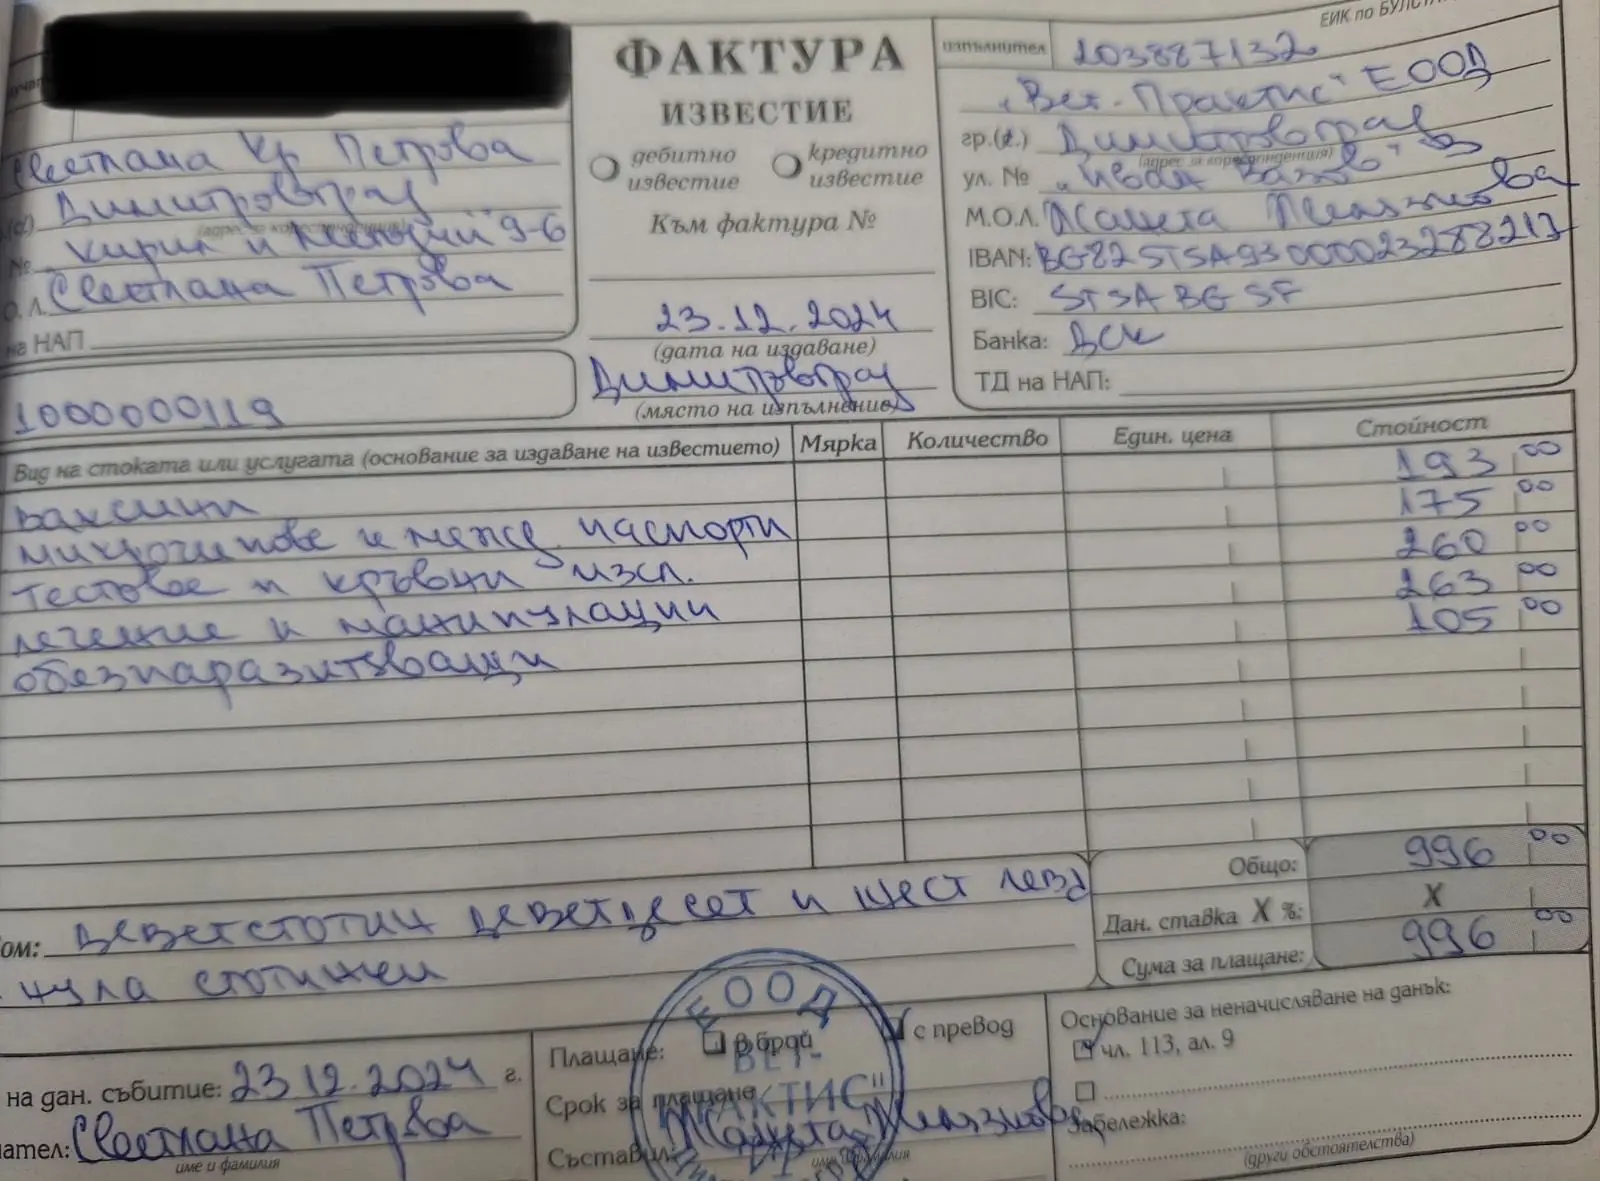 ЕИК по БУЛСТА
ФАКТУРА
ИЗВЕСТИЕ
дебитно известие
кредитно известие
Към фактура №
23.12.2024
(дата на издаване)
Димитровград
(място на изпълнение)
Светлана Кр Петрова
Димитровград
(адрес за кореспонденция)
№ Кирил и Методий" 9-6
О. Л. Светлана Петрова
на НАП
1000000119
изпълнител
203887132
"Вет-Практис" ЕООД
гр.(с.) Димитровград
(адрес за кореспонденция)
ул. № "Иван Вазов"
М.О.Л. Жанета
IBAN: BG82STSA93000023288217
BIC: STSABGSF
Банка: ДСК
ТД на НАП:
Вид на стоката или услугата (основание за издаване на известието) Мярка Количество Един. цена Стойност
ваксини 193 00
микрочипове и межд. паспорти 175 00
тестове и кръвни изсл. 260 00
лечение и манипулации 263 00
обезпаразитяващи 105 00
Общо: 996 00
Дан. ставка X %: X
Сума за плащане: 996 00
ом: деветстотин деветдесет и шест лева
и нула стотинки
на дан. събитие: 23 12. 2024 г.
ател: Светлана Петрова
име и фамилия
Плащане: в брой с превод
Срок за плащане
Съставил: Жанета
име и фамилия
ЕООД
ВЕТ-
ПРАКТИС"
Основание за неначисляване на данък:
чл. 113, ал. 9
Забележка:
(други обстоятелства)